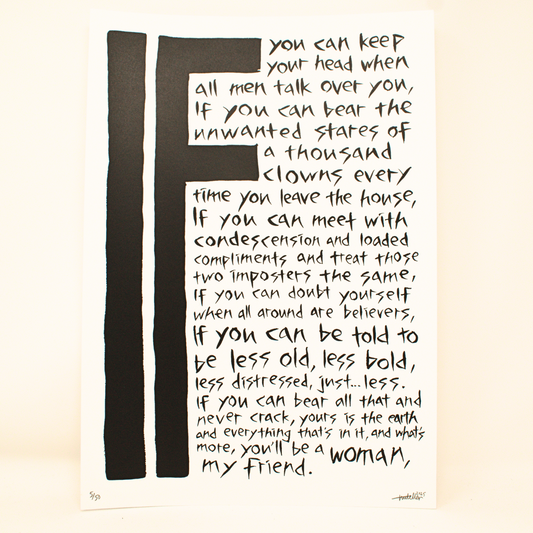 IF you can keep
your head when
all men talk over you,
If you can bear the
unwanted stares of
a thousand
clowns every
time you leave the house,
If you can meet with
condescension and loaded
compliments and treat those
two imposters the same,
if you can doubt yourself
when all around are believers,
If you can be told to
be less old, less bold,
less distressed, just... less.
if you can bear all that and
never crack, yours is the earth
and everything that's in it, and what's
more, you'll be a woman,
my friend.
5/50